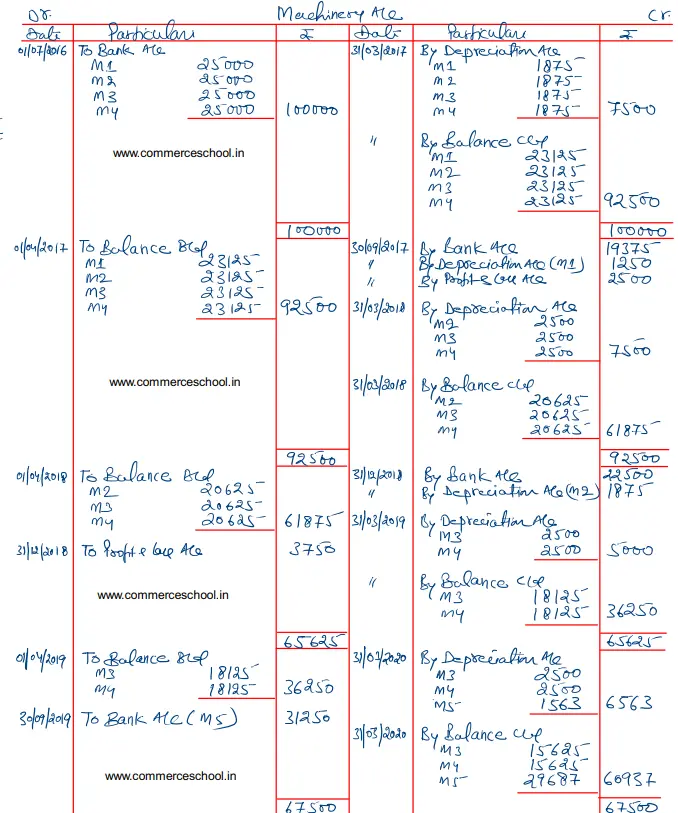 Dr. Machinery A/c Cr.
Date Particulars ₹ Date Particulars ₹
01/07/2016 To Bank A/c 31/03/2017 By Depreciation A/c
M1 25000 M1 1875
M2 25000 M2 1875
M3 25000 M3 1875
M4 25000 100000 M4 1875 7500
" By Balance c/d
www.commerceschool.in M1 23125
M2 23125
M3 23125
M4 23125 92500
100000 100000
01/04/2017 To Balance B/d 30/09/2017 By Bank A/c 19375
M1 23125 " By Depreciation A/c (M1) 1250
M2 23125 " By Profit & loss A/c 2500
M3 23125
M4 23125 92500 31/03/2018 By Depreciation A/c
M2 2500
M3 2500
M4 2500 7500
www.commerceschool.in 31/03/2018 By Balance c/d
M2 20625
M3 20625
M4 20625 61875
92500 92500
01/04/2018 To Balance B/d 31/12/2018 By Bank A/c 22500
M2 20625 " By Depreciation A/c (M2) 1875
M3 20625
M4 20625 61875 31/03/2019 By Depreciation A/c
M3 2500
31/12/2018 To Profit & loss A/c 3750 M4 2500 5000
" By Balance c/d
www.commerceschool.in M3 18125
M4 18125 36250
65625 65625
01/04/2019 To Balance B/d 31/03/2020 By Depreciation A/c
M3 18125 M3 2500
M4 18125 36250 M4 2500
M5 1563 6563
30/09/2019 To Bank A/c (M5) 31250
31/03/2020 By Balance c/d
M3 15625
M4 15625
www.commerceschool.in M5 29687 60937
67500 67500